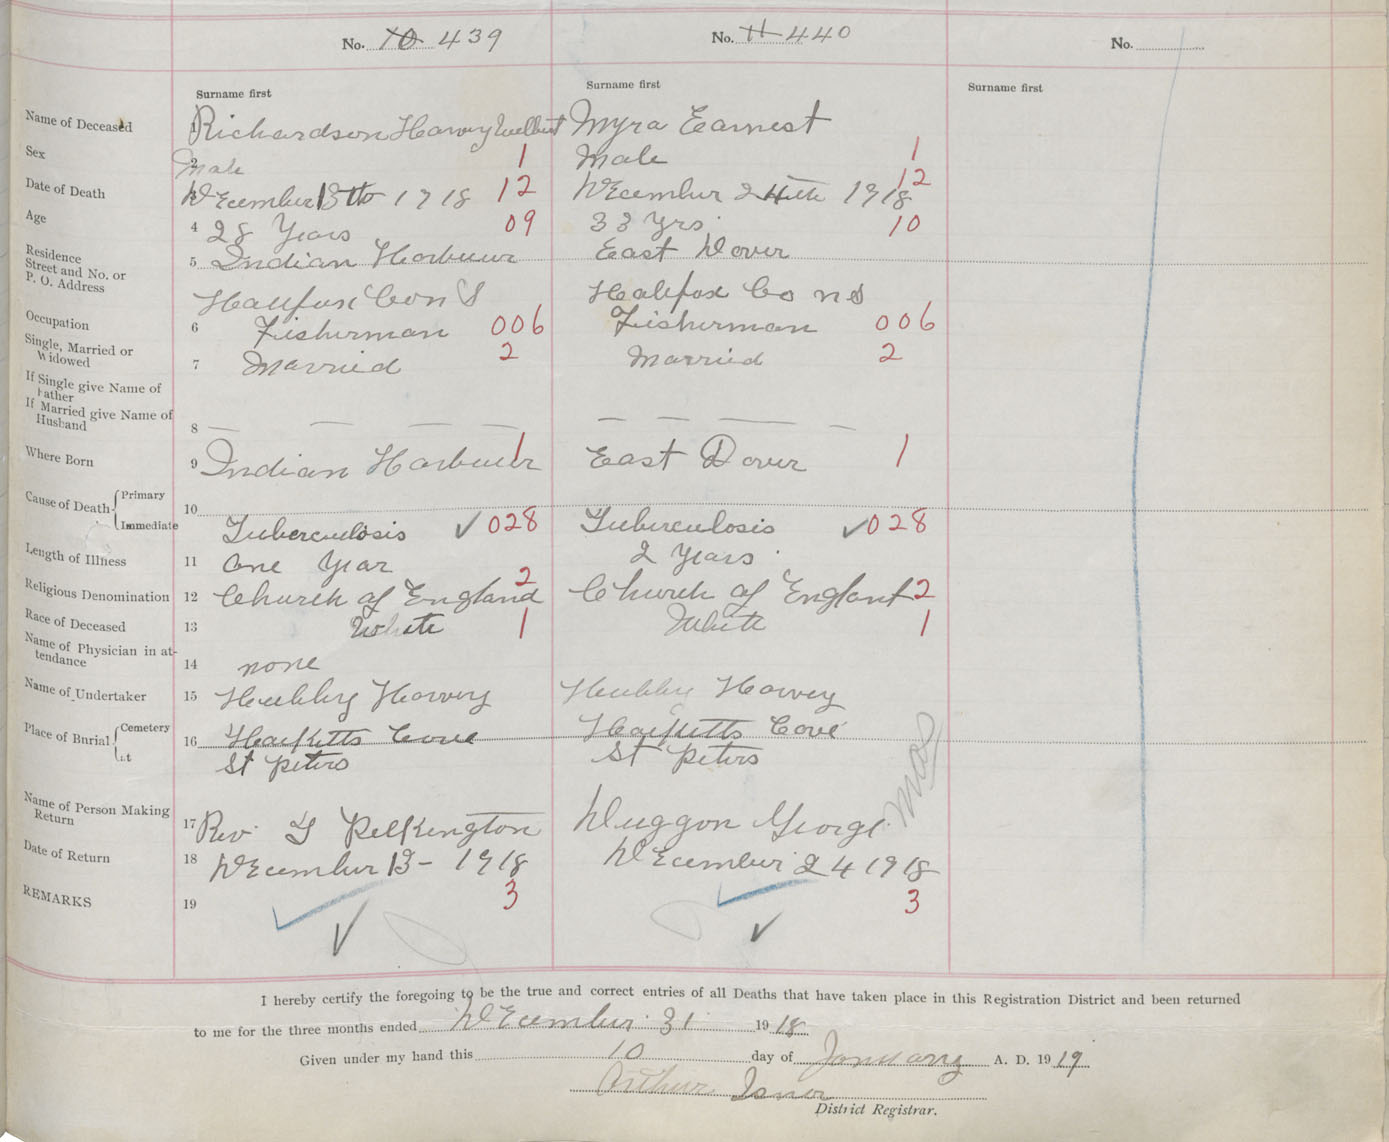 No. 10 439
No. 11 440
No.
Surname first
Surname first
Surname first
Name of Deceased 1 Richardson Harvey Myra Earnest
Sex 2 Male 1 Male 1
Date of Death December 13th 1918 12 December 24th 1918 12
Age 4 28 Years 09 33 Yrs 10
Residence
Street and No. or
P. O. Address
5 Indian Harbuur East Dover
Halifax Con S Halifax Co n s
Occupation 6 Fisherman 006 Fisherman 006
Single, Married or
Widowed
7 Married 2 Married 2
If Single give Name of
Father
If Married give Name of
Husband
8 — — — — — — — — —
Where Born 9 Indian Harbuur 1 East Dover 1
Cause of Death { Primary 10
Immediate Tuberculosis ✓ 028 Tuberculosis ✓ 028
Length of Illness 11 One Year 2 Years
Religious Denomination 12 Church of England 2 Church of England 2
Race of Deceased 13 White 1 White 1
Name of Physician in at-
tendance
14 none
Name of Undertaker 15 Hubley Harvey Hubley Harvey
Place of Burial { Cemetery 16 Hacketts Cove Hacketts Cove
St Peters St Peters
Name of Person Making
Return
17 Rev. Pelkington Duggon George
Date of Return 18 December 13 - 1918 December 24 1918
REMARKS 19 3 3
I hereby certify the foregoing to be the true and correct entries of all Deaths that have taken place in this Registration District and been returned
to me for the three months ended December 31 1918
Given under my hand this 10 day of January A. D. 1919
Arthur Isnor
District Registrar.